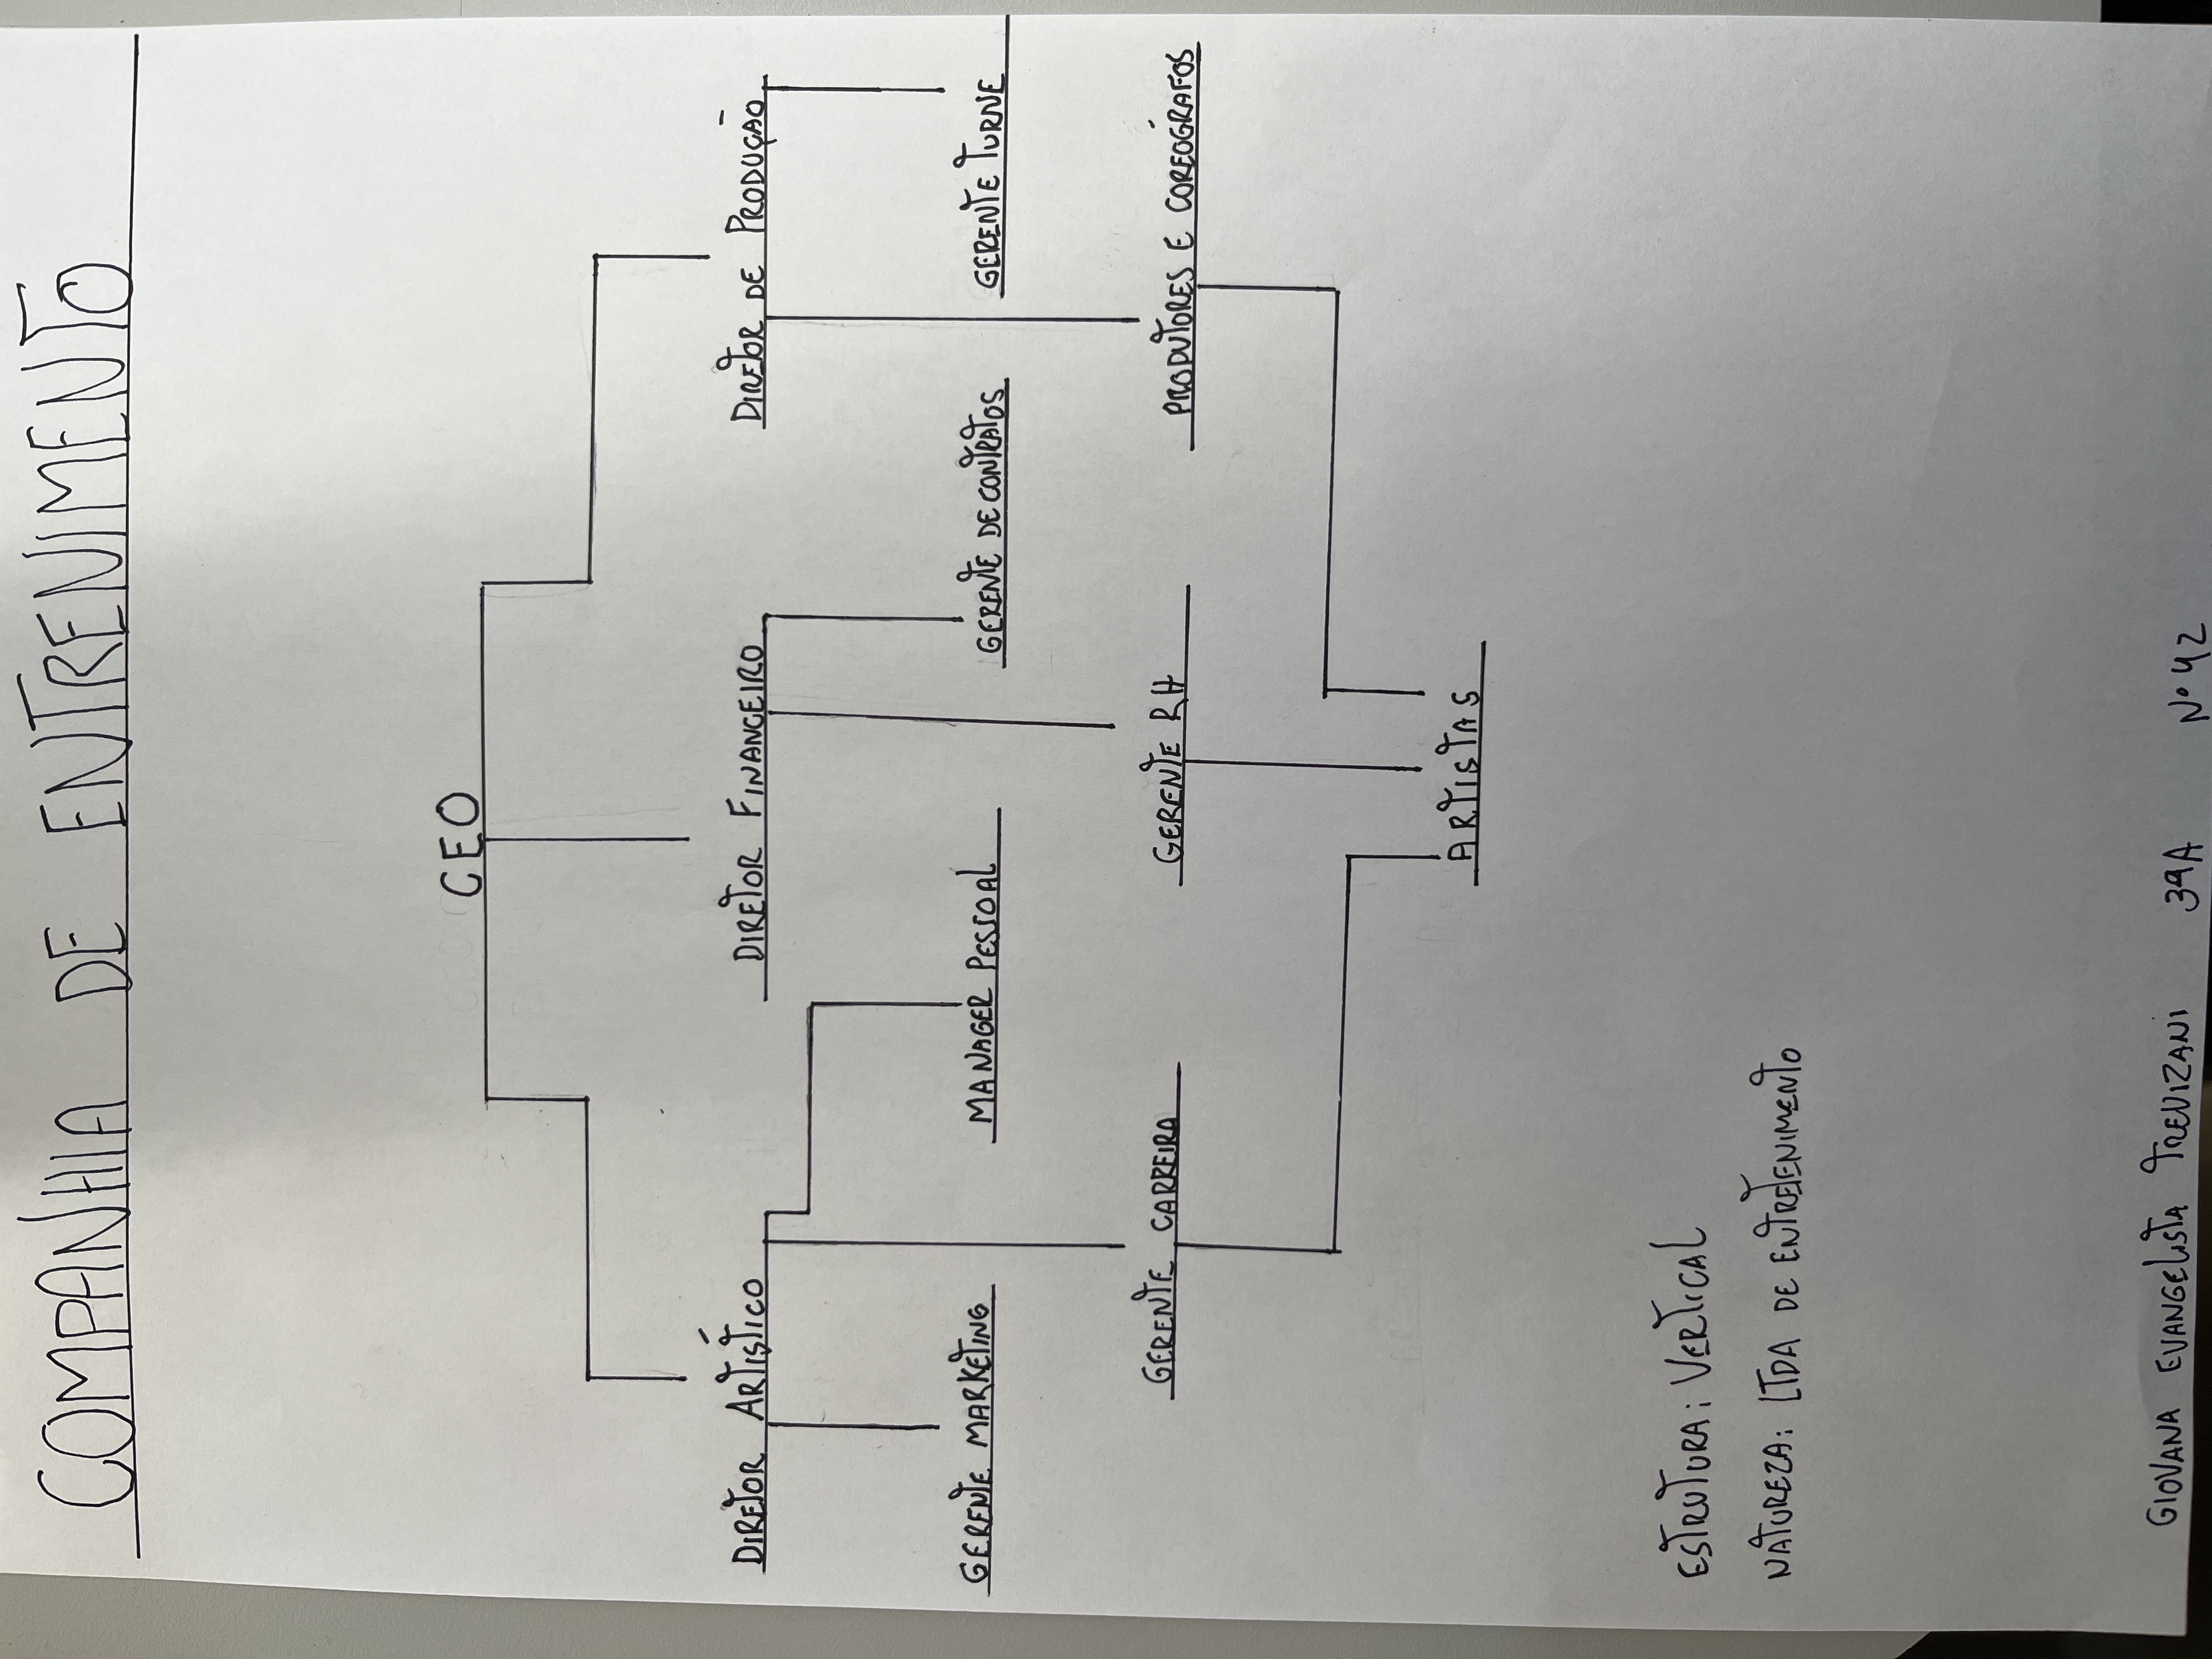 COMPANHIA DE ENTRENIMENTO
CEO
DIRETOR ARTÍSTICO
DIRETOR FINANCEIRO
DIRETOR DE PRODUÇÃO
GERENTE MARKETING
MANAGER PESSOAL
GERENTE DE CONTRATOS
GERENTE TURNE
GERENTE CARREIRA
GERENTE RH
PRODUTORES E COREÓGRAFOS
ARTISTAS
ESTRUTURA: VERTICAL
NATUREZA: LTDA DE ENTRETENIMENTO
GIOVANA EVANGELISTA TREVIZANI 3ªA Nº 42